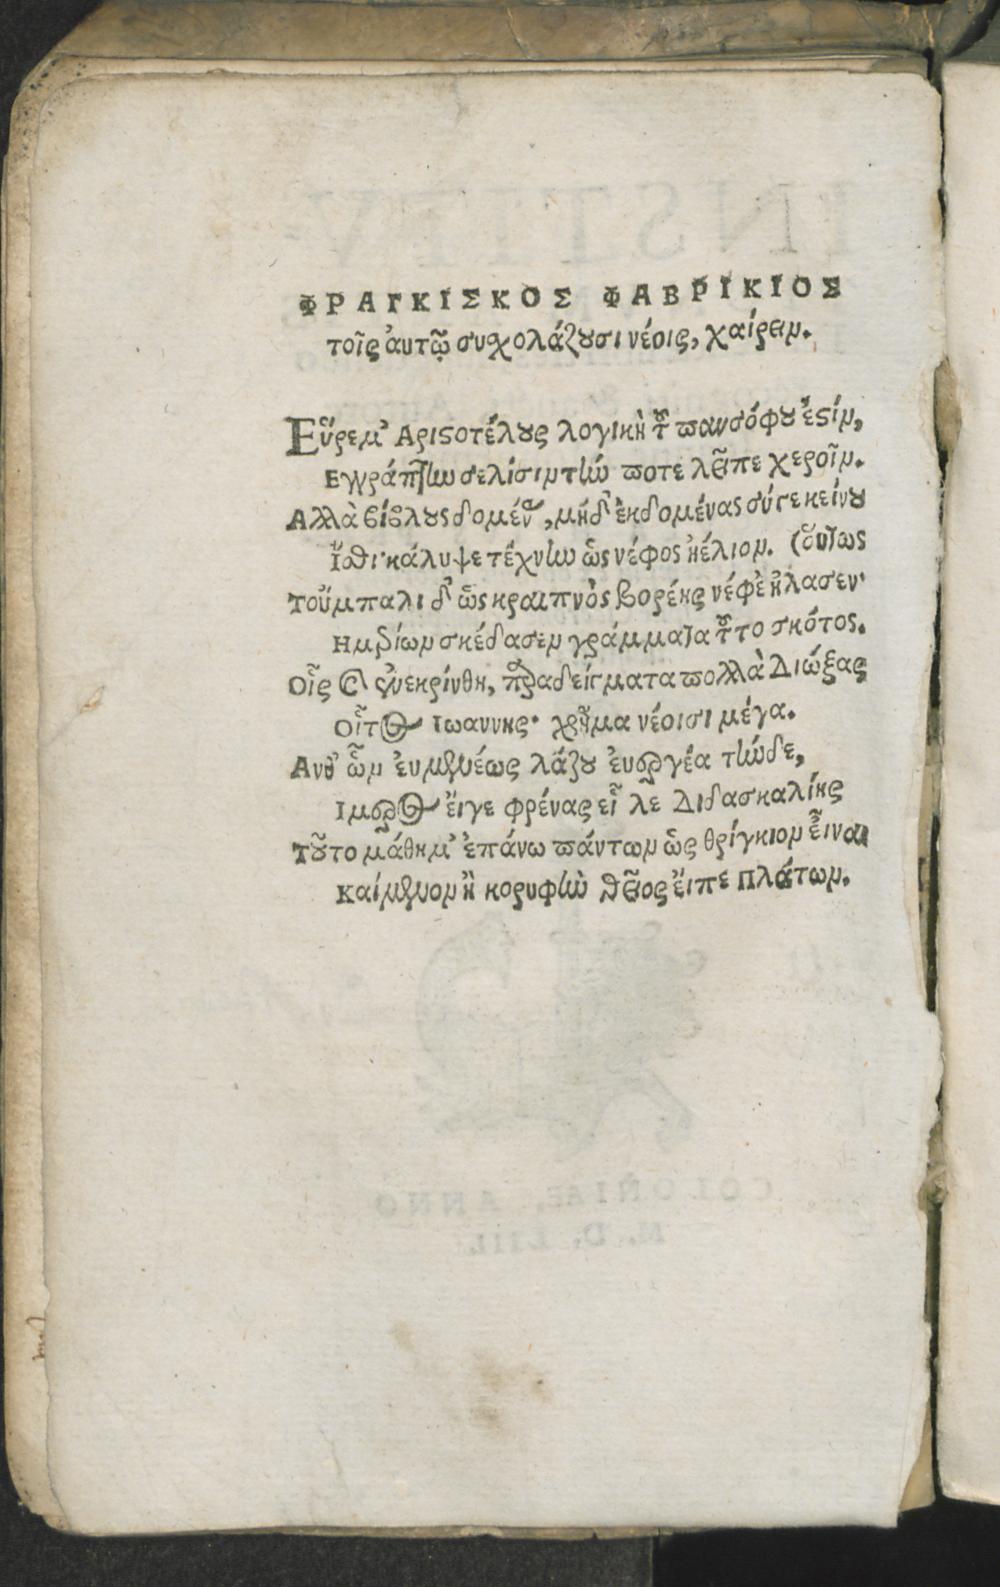 ΦΡΑΓΚΙΣΚΟΣ ΦΑΒΡΙΚΙΟΣ
τοῖς ἀυτῷ συχολάζουσι νέοις, χαίρειν.
Εὕρεμ' Αριστοτέλους λογικὴ τοῦ πανσόφου ἐστίν,
Εγγράπτην σελίσιν τήν ποτε λεῖπε χεροῖν.
Αλλὰ βίβλους δομέν, μήδ' ἐκδομένας σύγε κείνου
Ἴσθι· κάλυψε τέχνην ὡς νέφος ἠέλιον. (οὕτως
Τοὔμπαλι δ' ὡς κραιπνὸς βορέης νέφε ἤλασεν·
Ημῶν σκέδασεν γράμματα τοῦτο σκότος.
Οἷς συνεκρίνθη, παραδείγματα πολλὰ Διώξας
Οἷτος Ιωαννης· χρῆμα νέοισι μέγα.
Ανθ' ὧν ἐυμενέως λάζου ἐυεργέα τήνδε,
Ιμερος ἔιγε φρένας εἷλε Διδασκαλίης
Τοῦτο μάθημ' ἐπάνω πάντων ὡς θρίγκιον εἶναι
Καίμενον ἢ κορυφὴν θεῖος ἔειπε Πλάτων.
COLONIAE, ANNO
M. D. LIII.